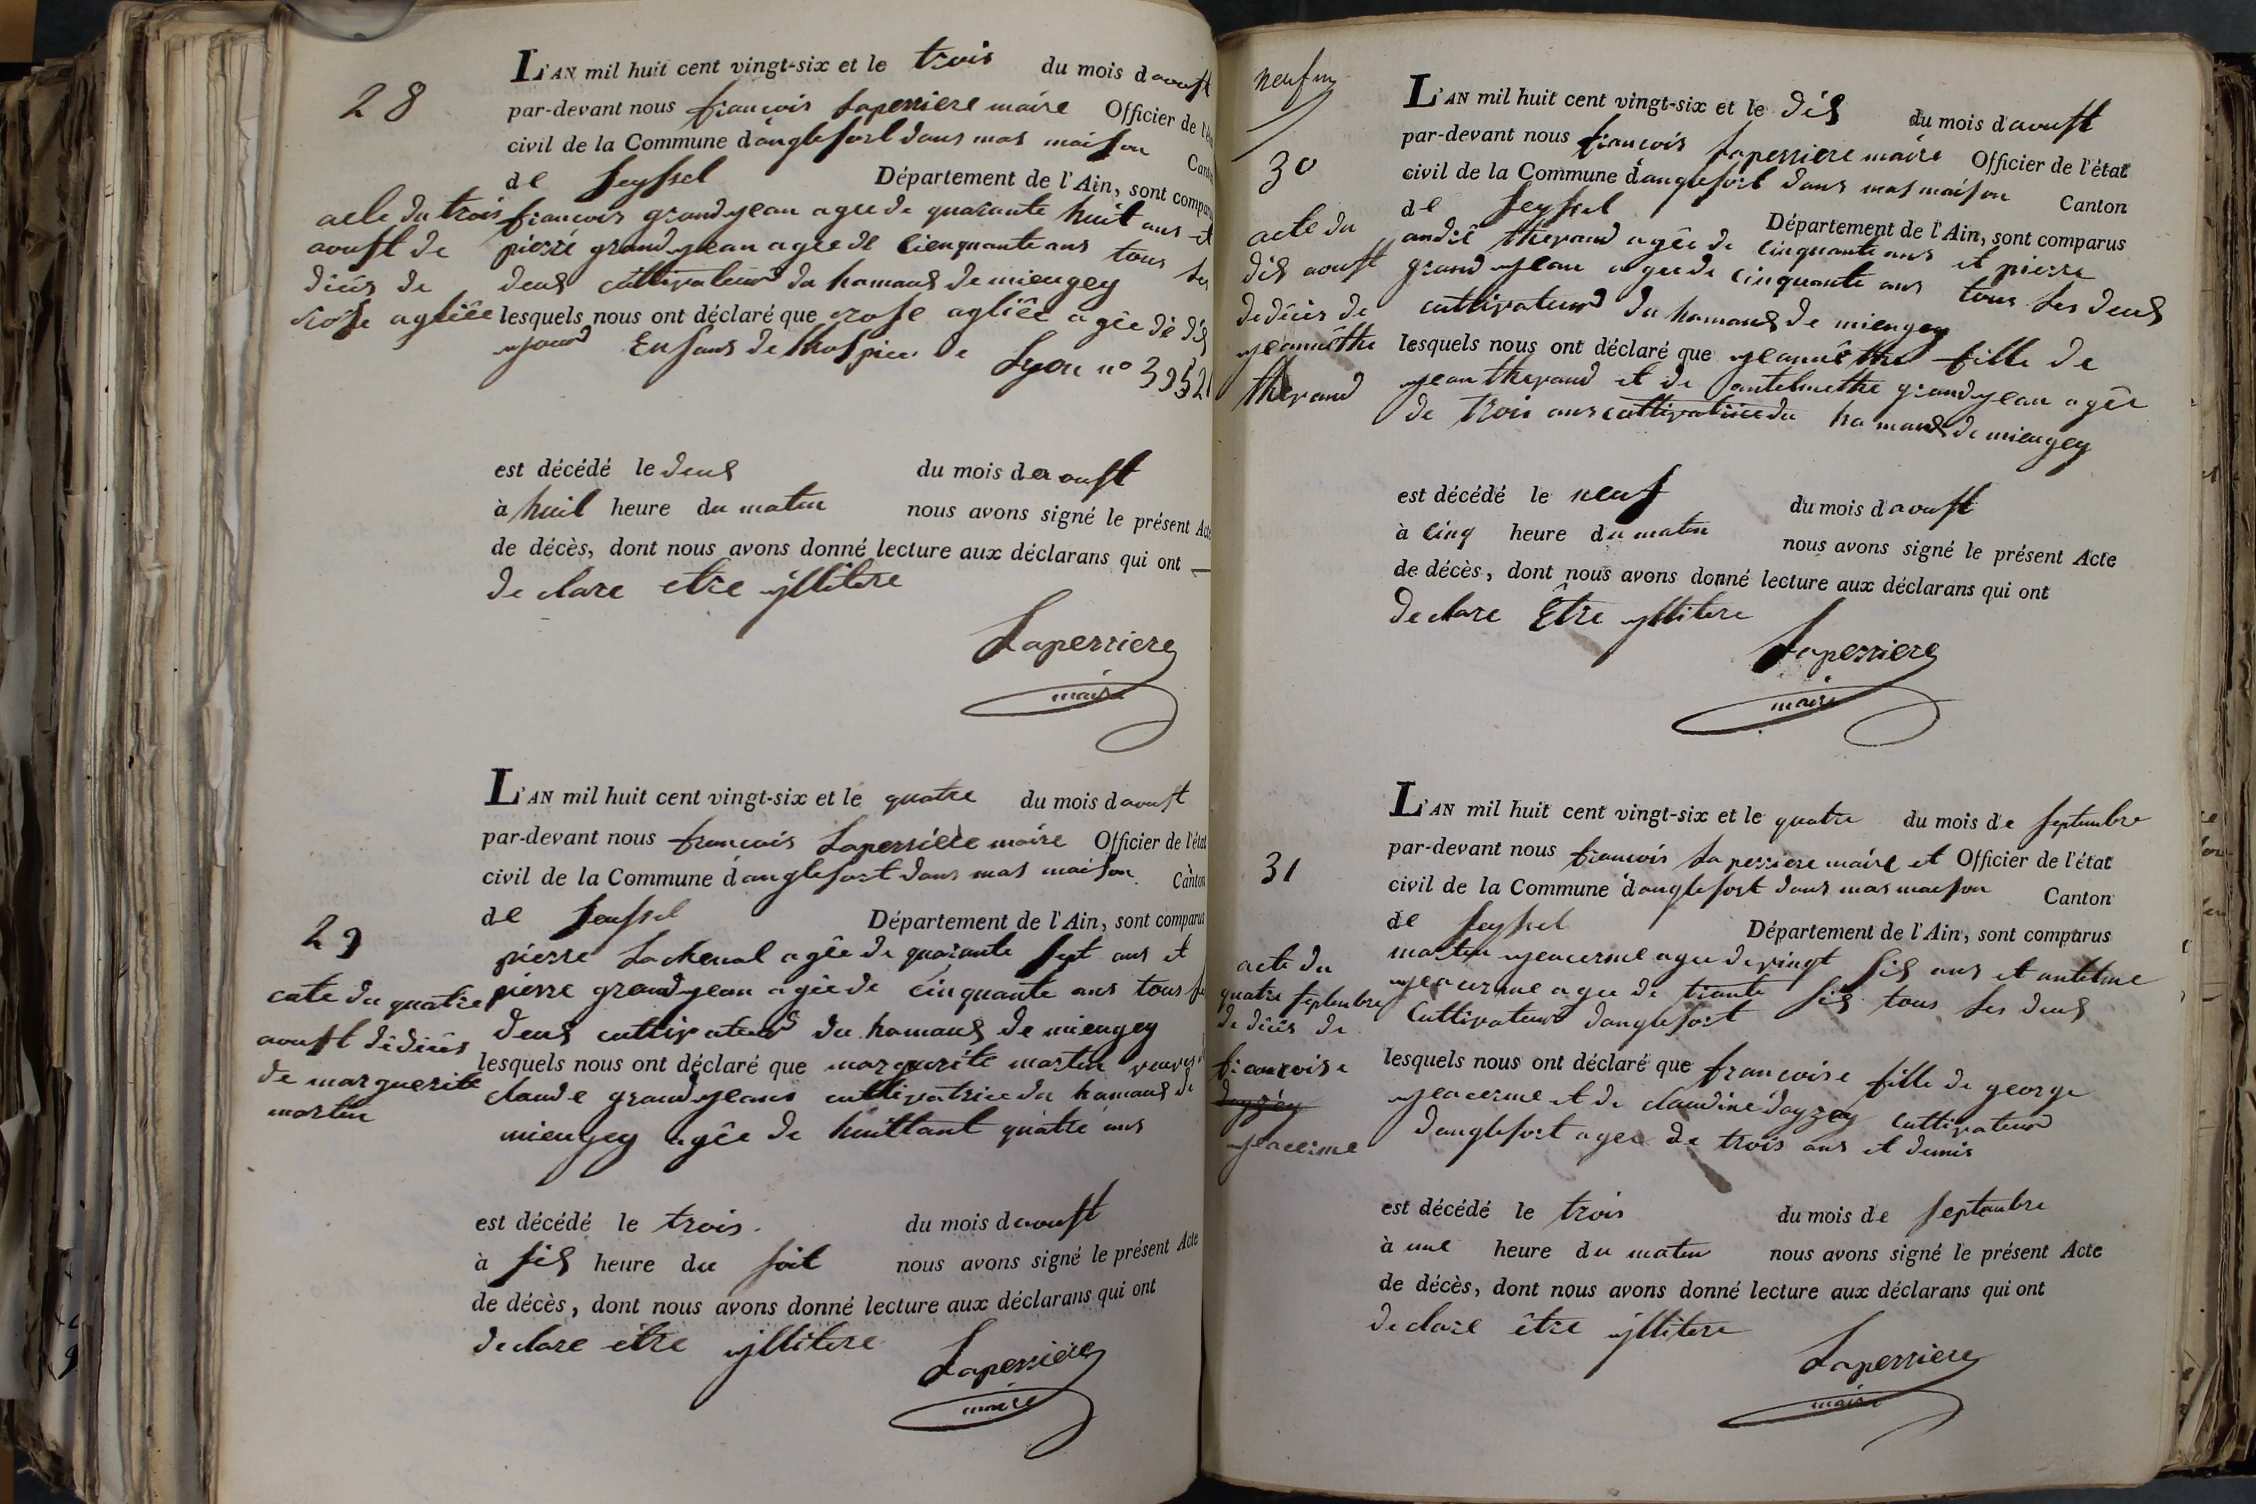 28
L'AN mil huit cent vingt-six et le trois du mois d aoust
par-devant nous francois Laperriere maire Officier de l'état
civil de la Commune d'anglefort dans mas maison Canton
de Seyssel Département de l'Ain, sont comparus
acte du trois
aoust de
diciis de
rose agliée
francois grandyean agee de quarante huit ans et
pierre grandyean agee de cienquante ans tous les
deus cultivateurs du hamaus de miengey
lesquels nous ont déclaré que rose agliée agée de dis
yours Enfans de lhospice de Lyon n° 3952
est décédé le deus du mois d aoust
à huit heure du matin nous avons signé le présent Acte
de décès, dont nous avons donné lecture aux déclarans qui ont
declare etre yllitere
Laperriere
maire
29
L'AN mil huit cent vingt-six et le quatre du mois d aoust
par-devant nous francois Laperriere maire Officier de l'état
civil de la Commune d'anglefort dans mas maison Canton
de Seussel Département de l'Ain, sont comparus
cate du quatre
aoust dediciis
de marguerite
martin
pierre Lachenal agée de quarante sept ans et
pierre grandyean agée de cinquante ans tous les
deus cultivateurs du hamaus de miengey
lesquels nous ont déclaré que marguerite martin veuve
claude grandyeans cultivatrice du hamaus de
miengey agée de huittant quatre ans
est décédé le trois du mois d aoust
à sis heure du soit nous avons signé le présent Acte
de décès, dont nous avons donné lecture aux déclarans qui ont
declare être yllitere
Laperriere
maire
30
L'AN mil huit cent vingt-six et le dis du mois d'aoust
par-devant nous francois Laperriere maire Officier de l'état
civil de la Commune d'anglefort dans mas maison Canton
de Seyssel Département de l'Ain, sont comparus
acte du
dis aoust
de déciis de
yeannêthe
therand
andré therand agée de cinquante ans et pierre
grandyean agee de cinquante ans tous les deus
cultivateurs du hamaus de miengey
lesquels nous ont déclaré que yeannêthe fille de
yean therand et de antelmethe grandyean agée
de trois ans cultivatrice du hamaus de miengey
est décédé le neuf du mois d aoust
à cinq heure du matin nous avons signé le présent Acte
de décès, dont nous avons donné lecture aux déclarans qui ont
declare Être yllitere
Laperriere
maire
31
L'AN mil huit cent vingt-six et le quatre du mois de septembre
par-devant nous francois Laperriere maire et Officier de l'état
civil de la Commune d'anglefort dans mas maison Canton
de Seyssel Département de l'Ain, sont comparus
acte du
quatre septembre
de déciis de
francoise
dayzey
yeacerme
martin yeacerme agee de vingt sis ans et antelme
yeacerme agee de trante sis tous les deus
Cultivateurs danglefort
lesquels nous ont déclaré que francoise fille de george
yeacerme et de claudine dayzey cultivateurs
d'anglefort agee de trois ans et demis
est décédé le trois du mois de septembre
à une heure du matin nous avons signé le présent Acte
de décès, dont nous avons donné lecture aux déclarans qui ont
declare être yllitere
Laperriere
maire